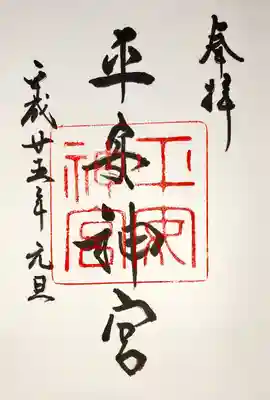 奉拝
平安神宮
平成廿五年 元旦
平安神宮